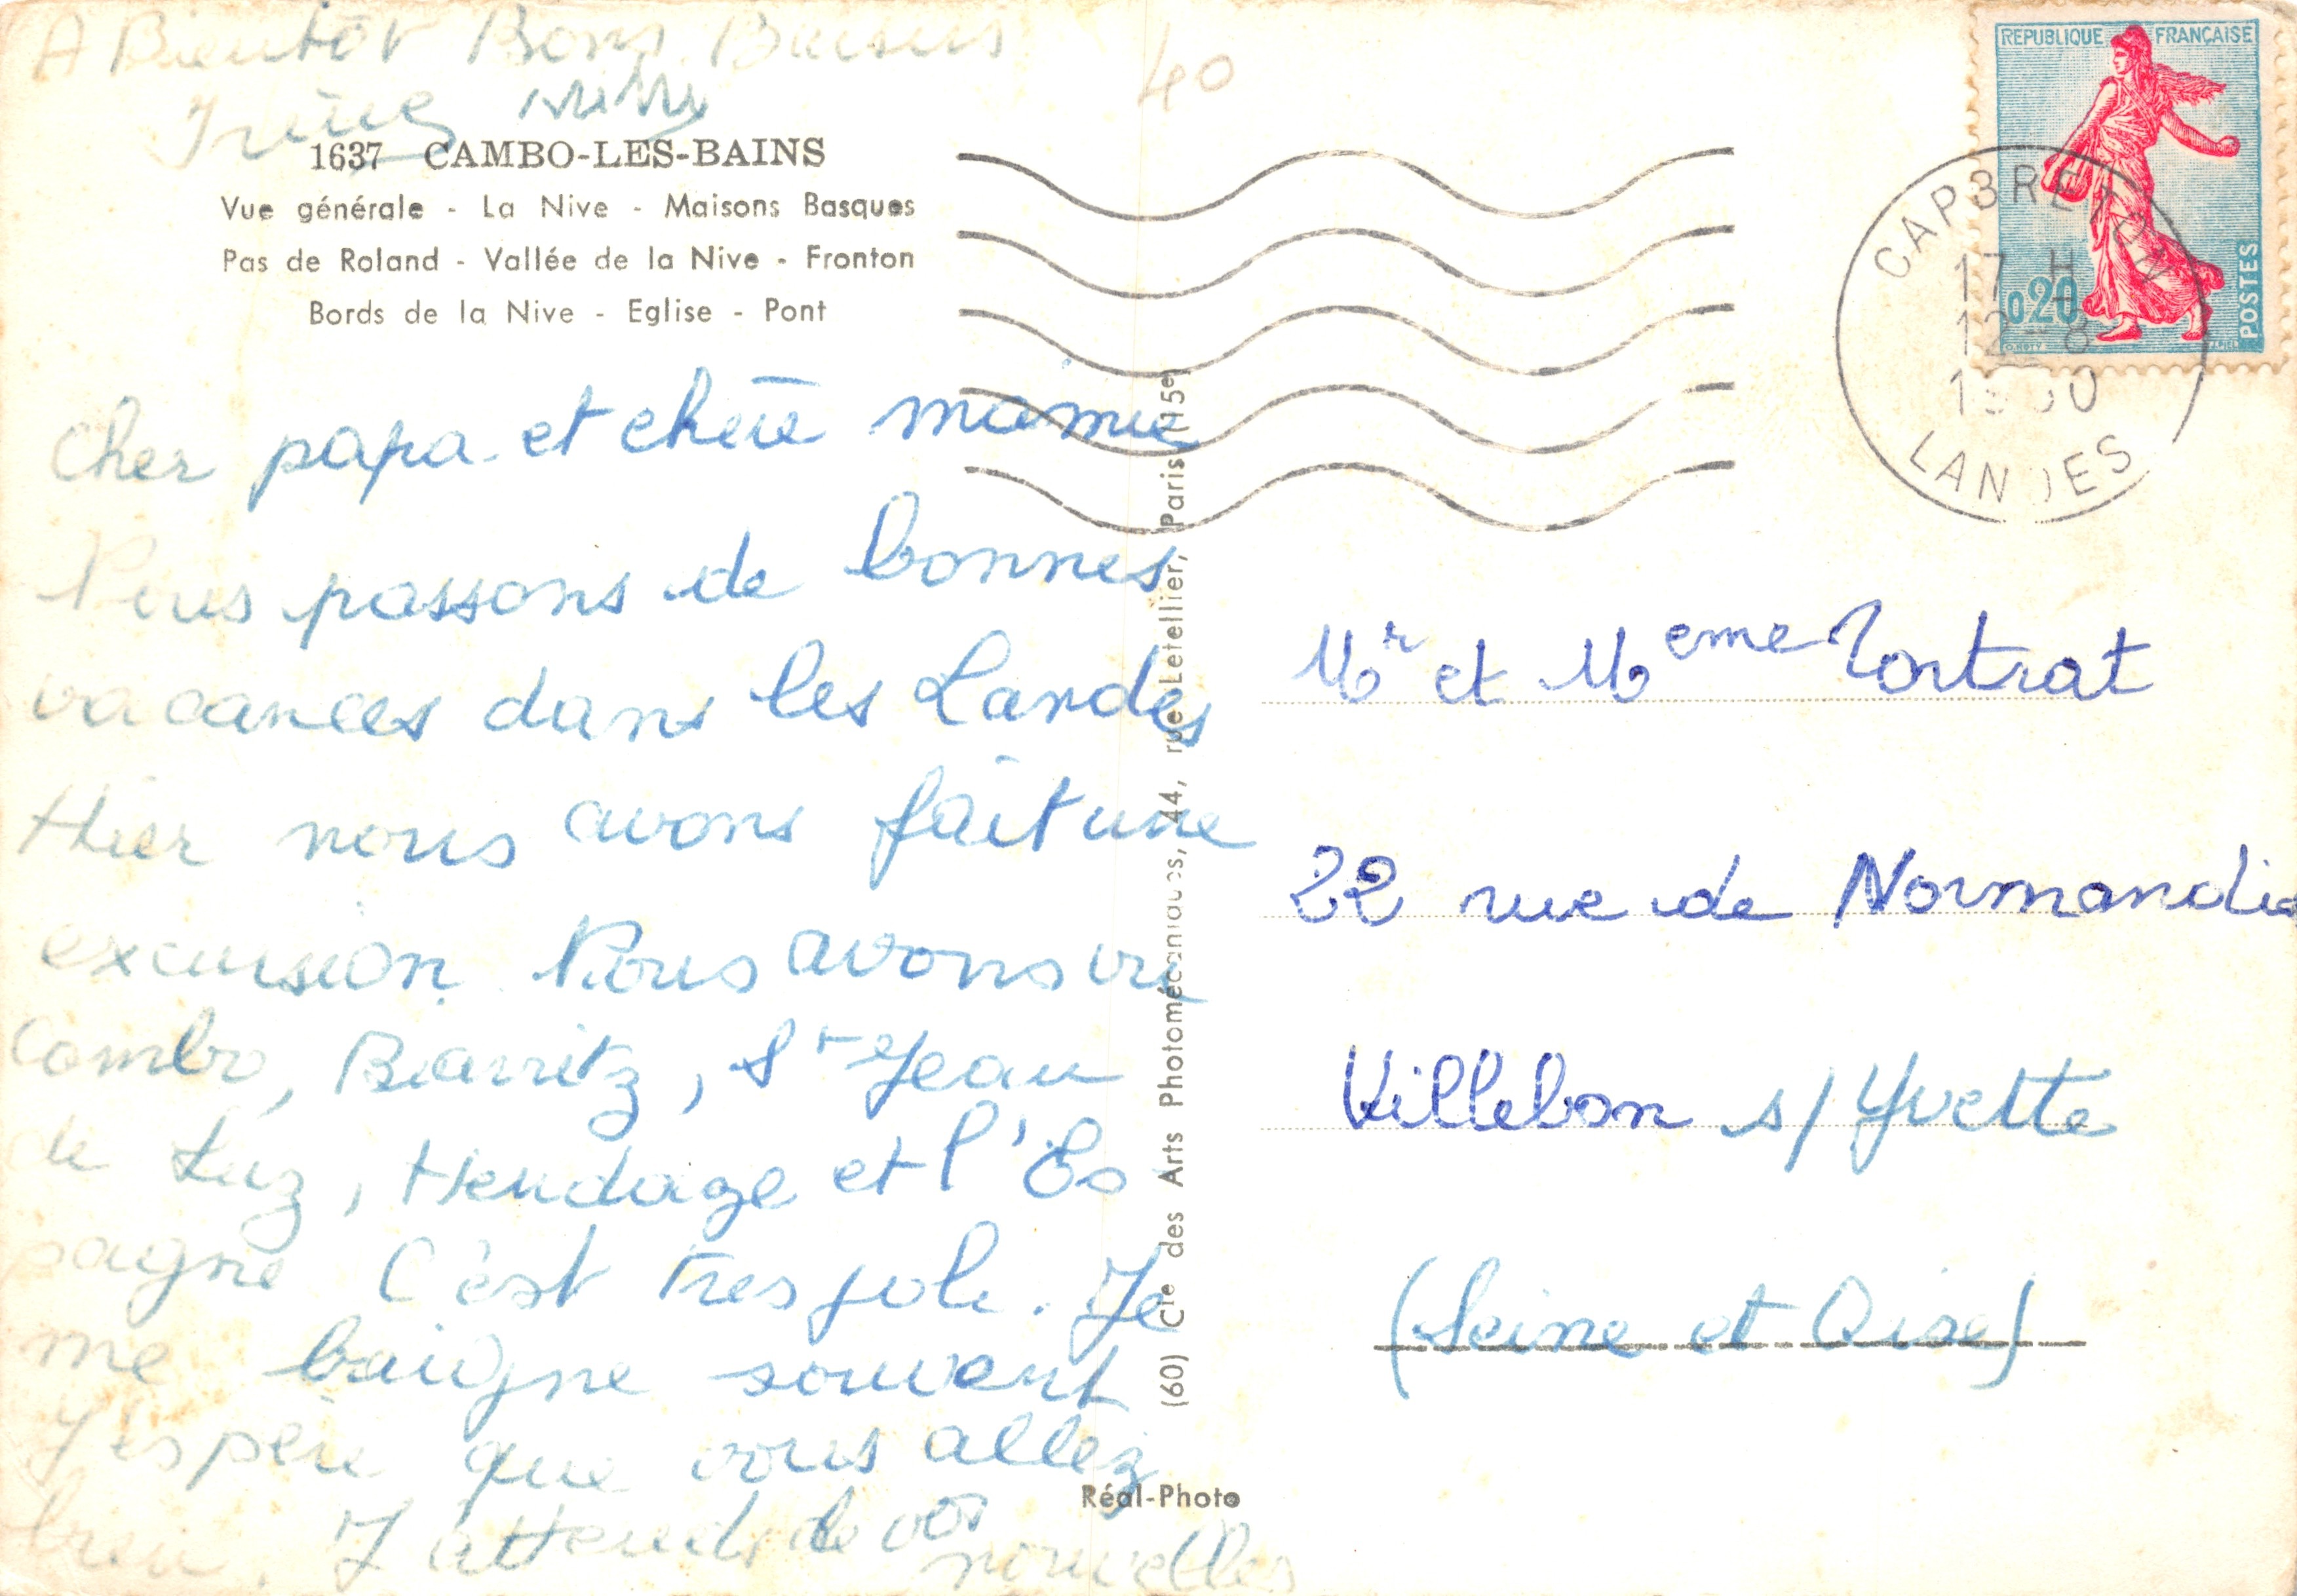 A Bientôt Bons Baisers
Irène
40
1637 CAMBO-LES-BAINS
Vue générale - La Nive - Maisons Basques
Pas de Roland - Vallée de la Nive - Fronton
Bords de la Nive - Eglise - Pont
Cher papa et chère mamie
Nous passons de bonnes
vacances dans les Landes
Hier nous avons fait une
excursion. Nous avons vu
Cambo, Biarritz, St Jean
de Luz, Hendaye et l'Es
pagne C'est tres joli. Je
me baigne souvent
J'espère que vous allez
bien. J'attends de vos
nouvelles
(60) Cie des Arts Photomécaniques, 44, rue Letellier, Paris (15e)
Réal-Photo
REPUBLIQUE FRANÇAISE
0,20
POSTES
CAPBRETON
17 H
12-8
1960
LANDES
Mr et Meme Tortrat
22 rue de Normandie
Villebon s/Yvette
(Seine et Oise)